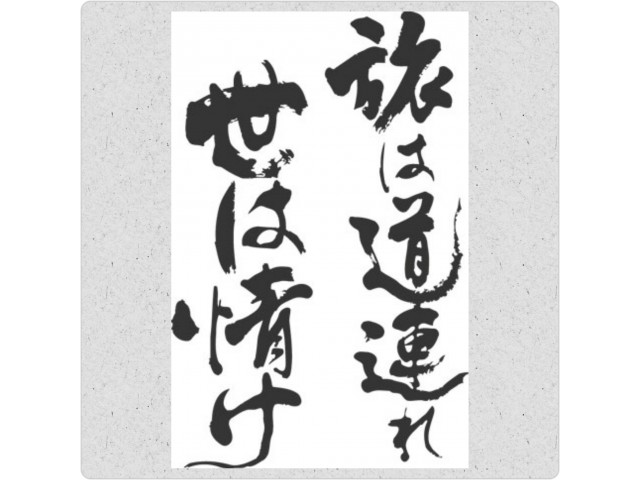 旅は道連れ
世は情け